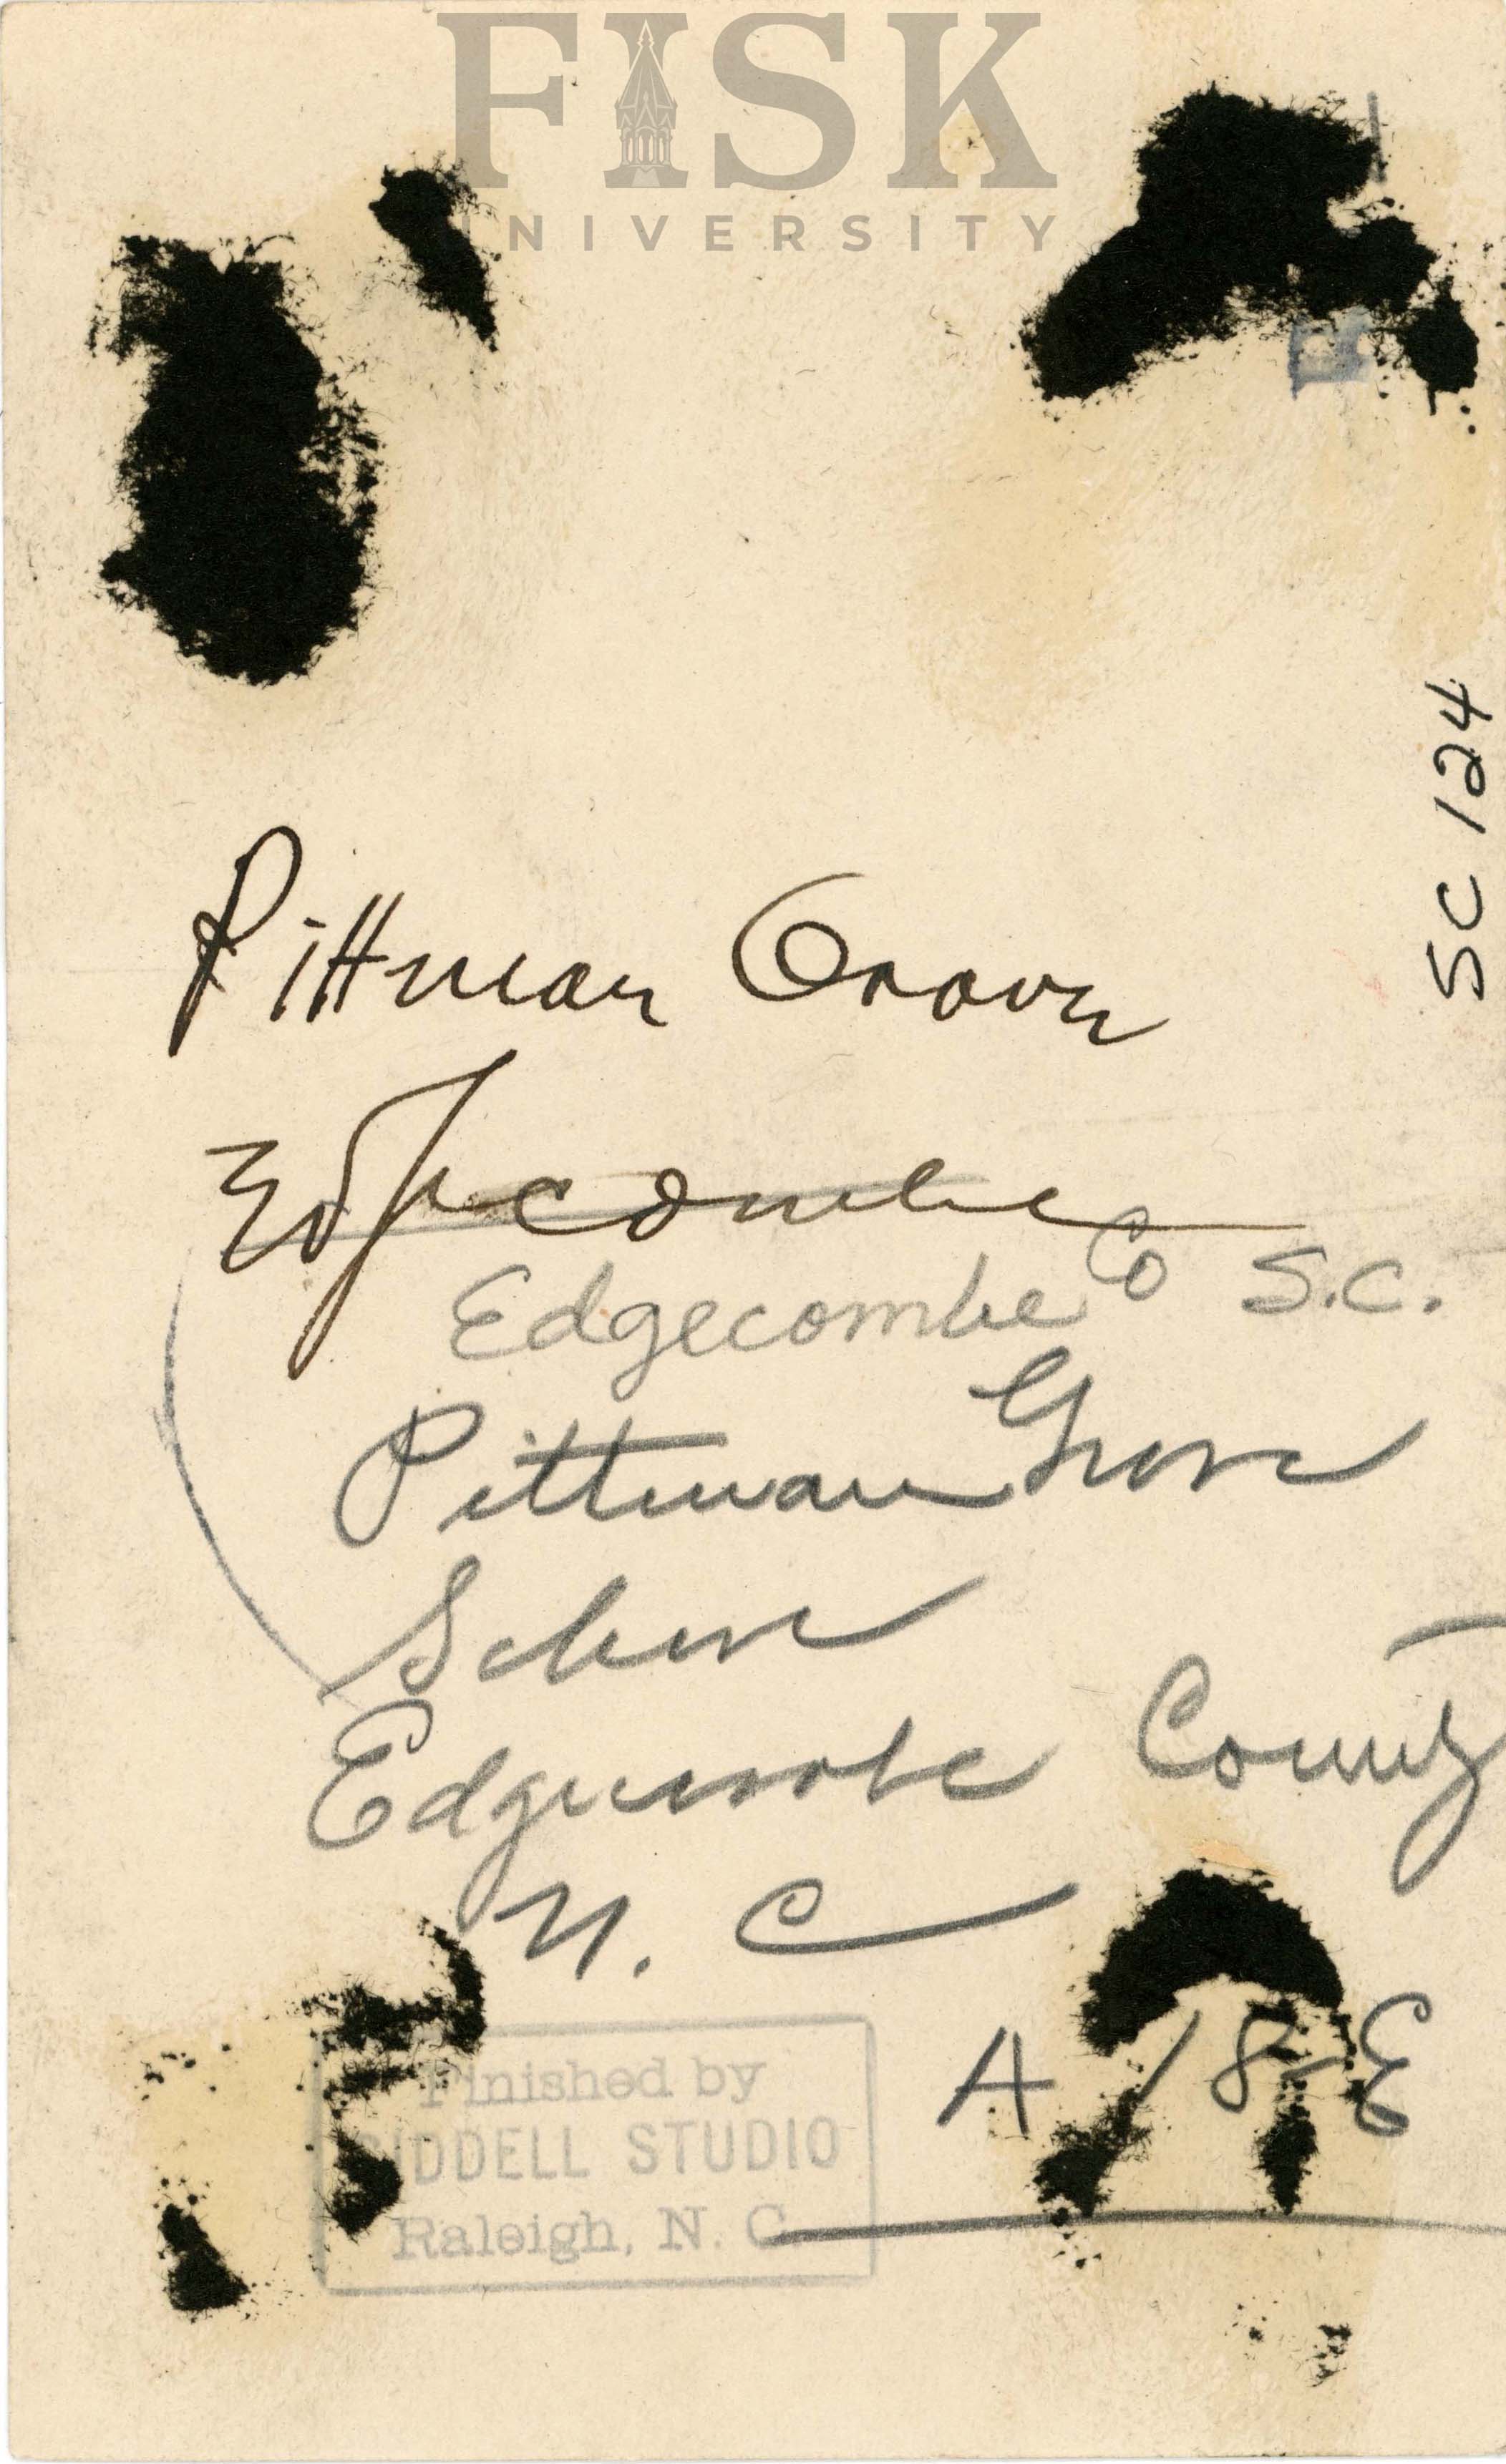 FISK
UNIVERSITY
SC 124
Pittman Grove
Edgecombe
Edgecombe Co S.C.
Pittman Grove
County
N. C
A 18-E
Finished by
STUDIO
Raleigh, N. C.